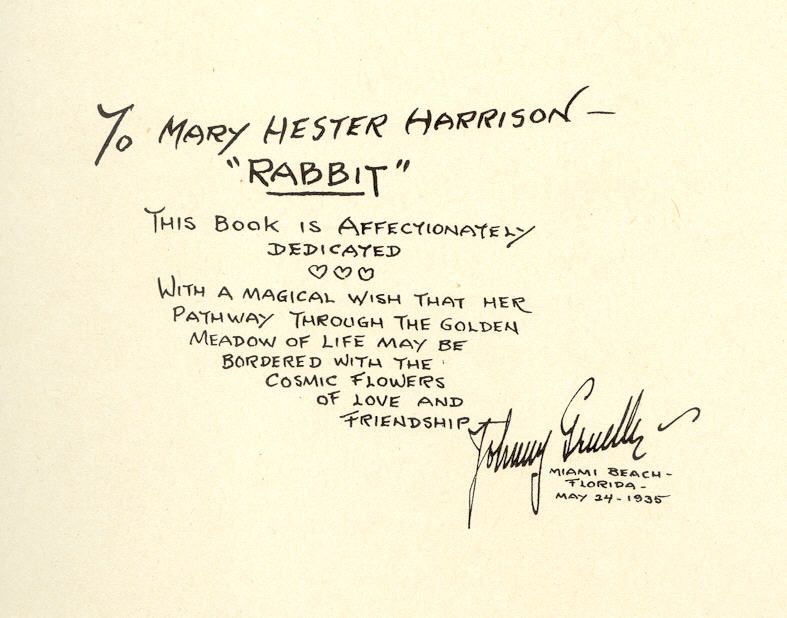 To MARY HESTER HARRISON —
"RABBIT"
THIS BOOK IS AFFECTIONATELY
DEDICATED
♡♡♡
WITH A MAGICAL WISH THAT HER
PATHWAY THROUGH THE GOLDEN
MEADOW OF LIFE MAY BE
BORDERED WITH THE
COSMIC FLOWERS
OF LOVE AND
FRIENDSHIP
Johnny Gruelle
MIAMI BEACH-
FLORIDA-
MAY 24-1935